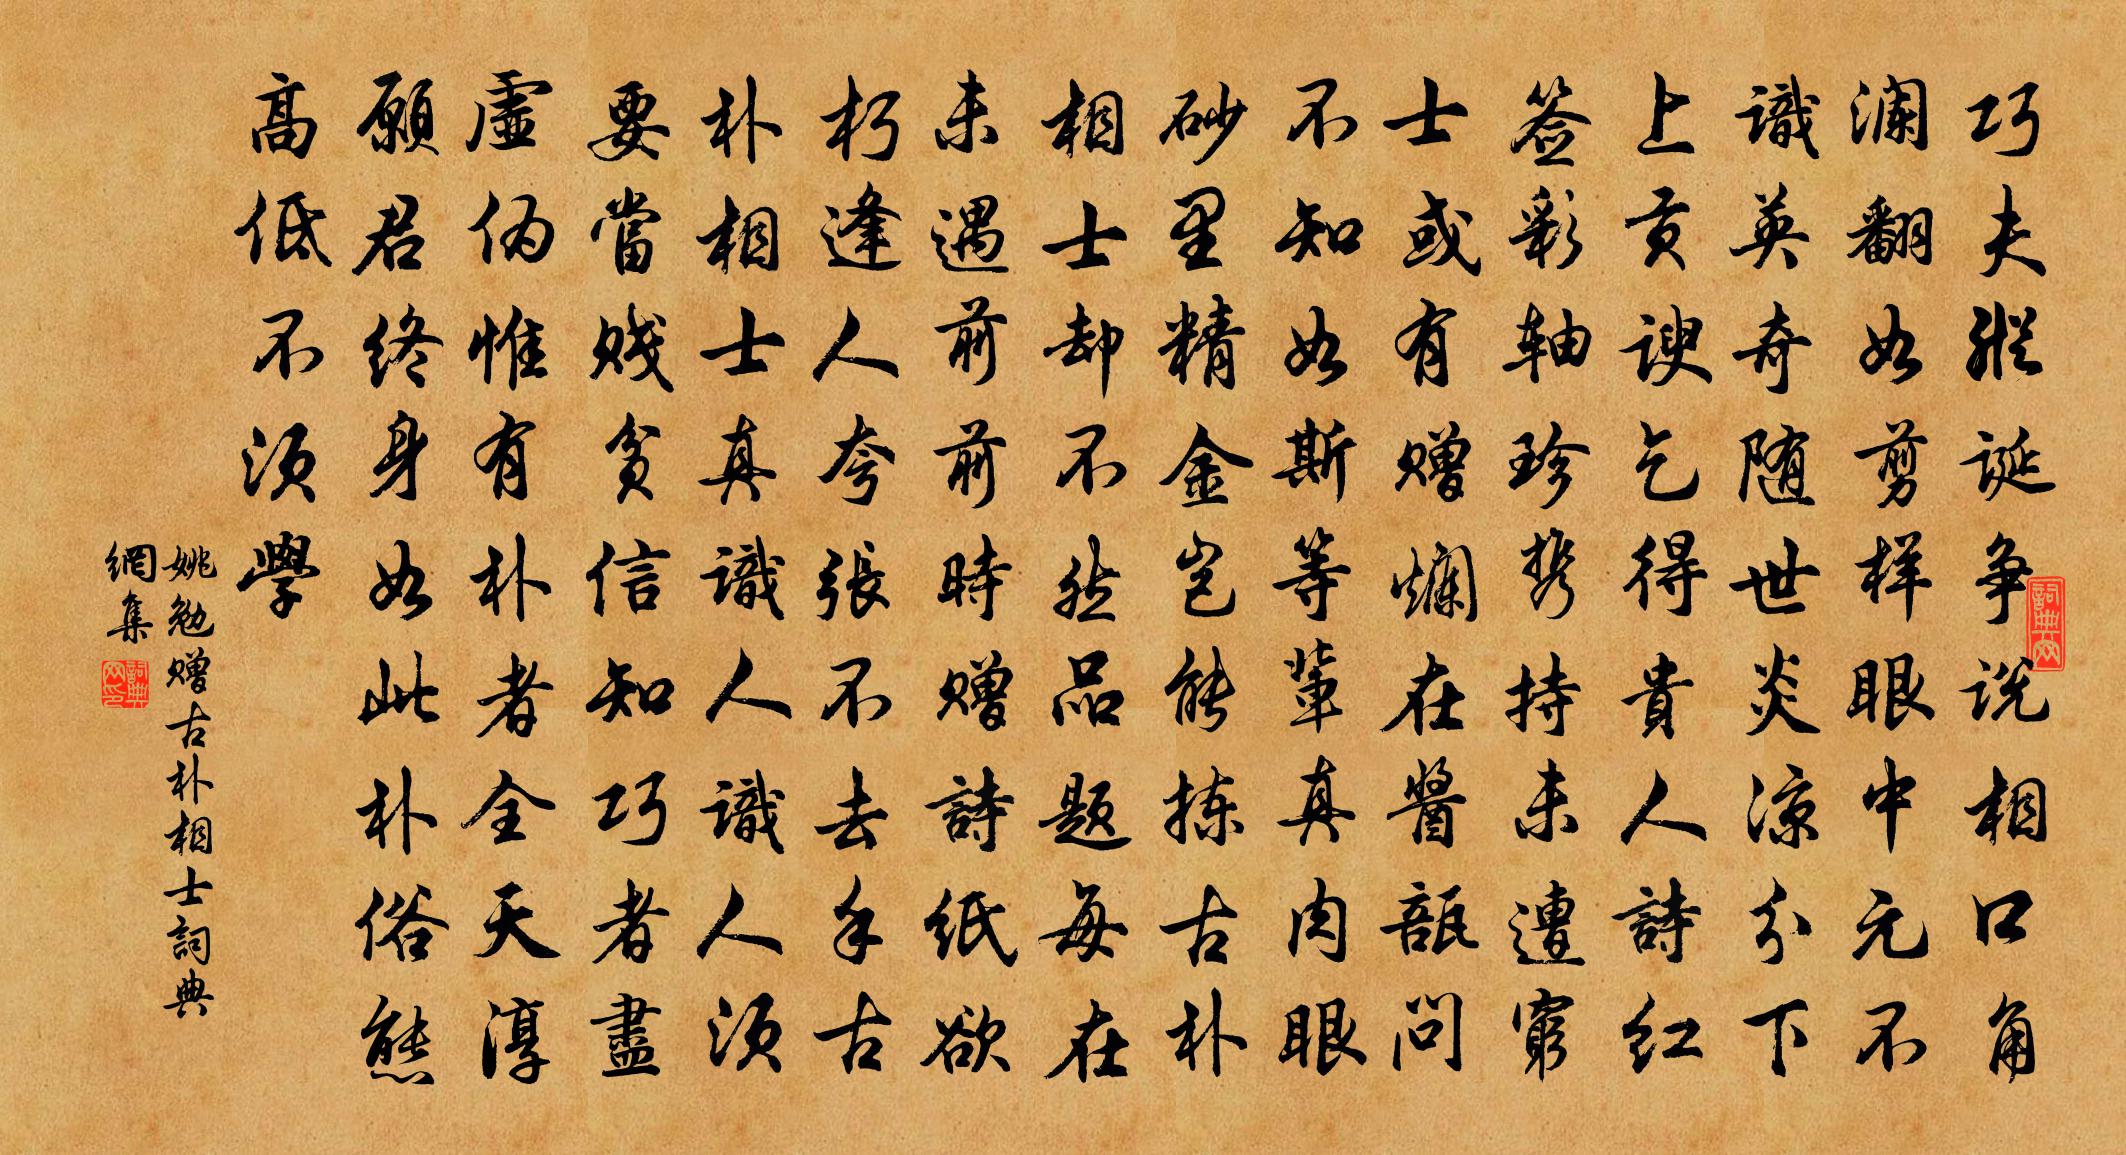 巧夫縱誕争説相口角
瀾翻如剪样眼中元不
識英奇随世炎凉分下
上貢諛乞得貴人詩红
签彩轴珍携持未遭窮
士或有赠爛在醬瓿问
不知如斯等輩真肉眼
砂里精金岂能拣古朴
相士却不然品题每在
未遇前前時赠詩紙欲
朽逢人夸張不去手古
朴相士真識人識人須
要當贱贫信知巧者盡
虚伪惟有朴者全天淳
願君终身如此朴俗態
高低不须學
姚勉赠古朴相士詞典
網集
詞典网
詞典网印